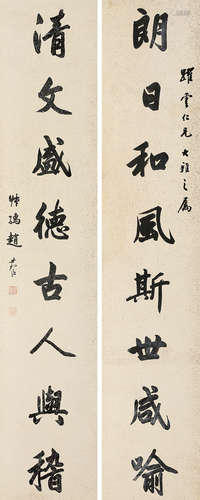 朗日和風斯世咸喻
躍雲仁兄大雅之屬
清文盛德古人與稽